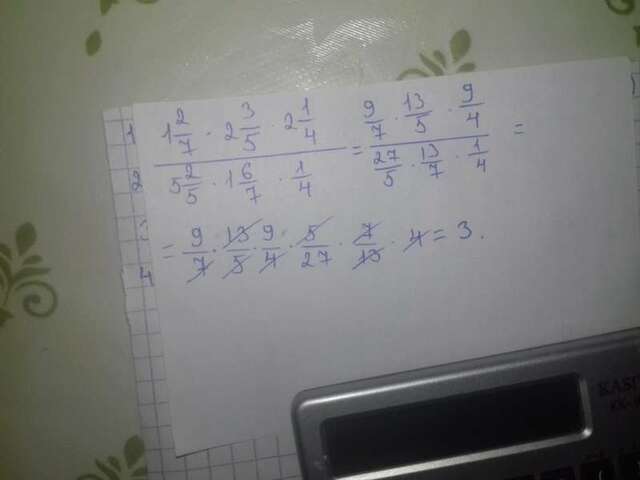 1 2/7 · 2 3/5 · 2 1/4 / 5 2/5 · 1 6/7 · 1/4 = 9/7 · 13/5 · 9/4 / 27/5 · 13/7 · 1/4 =
= 9/7 · 13/5 · 9/4 · 5/27 · 7/13 · 4 = 3.
1
2
4